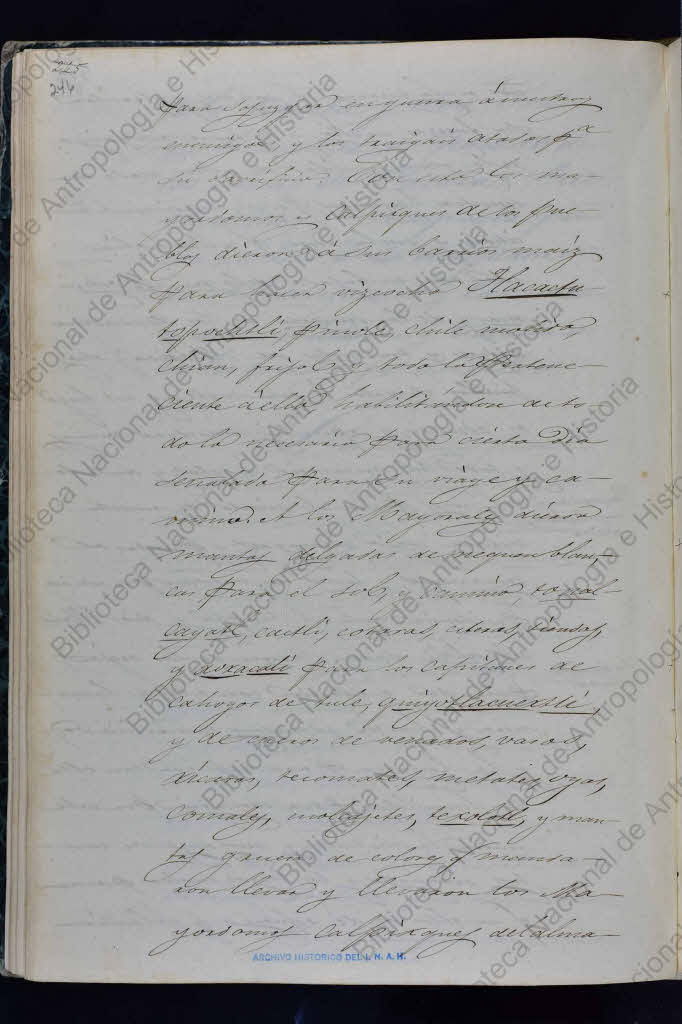 244
para sojuzgar en guerra á nuestros
enemigos y los traigais atados pa
su sacrificio. Con esto los ma-
yordomos o Calpixques de los pue-
blos dieron á sus barrios maiz
para hacer vizcocho Tlacactu-
topochtli, pinole, chile molido,
chian, frijol y todo lo pertene-
ciente á ello, habilitándose de to-
do lo necesario para cierto dia
señalado para su viage y ca-
mino. A los Mayorales dieron
mantas delgadas de nequen blan-
cas para el sol, y camino, tonal-
cayatl, cactli, cotaras, tiendas,
y aoxacali para los capitanes de
de tule,
y de cueros de venados, vasos,
xicaras, tecomates, metates, oyas,
comales, molcajetes, texolotl, y man-
tas gruesas de colores y manda-
ron llevar y llevaron los Ma-
yordomos Calpixques de
ARCHIVO HISTORICO DEL I. N. A. H.
Biblioteca Nacional de Antropología e Historia